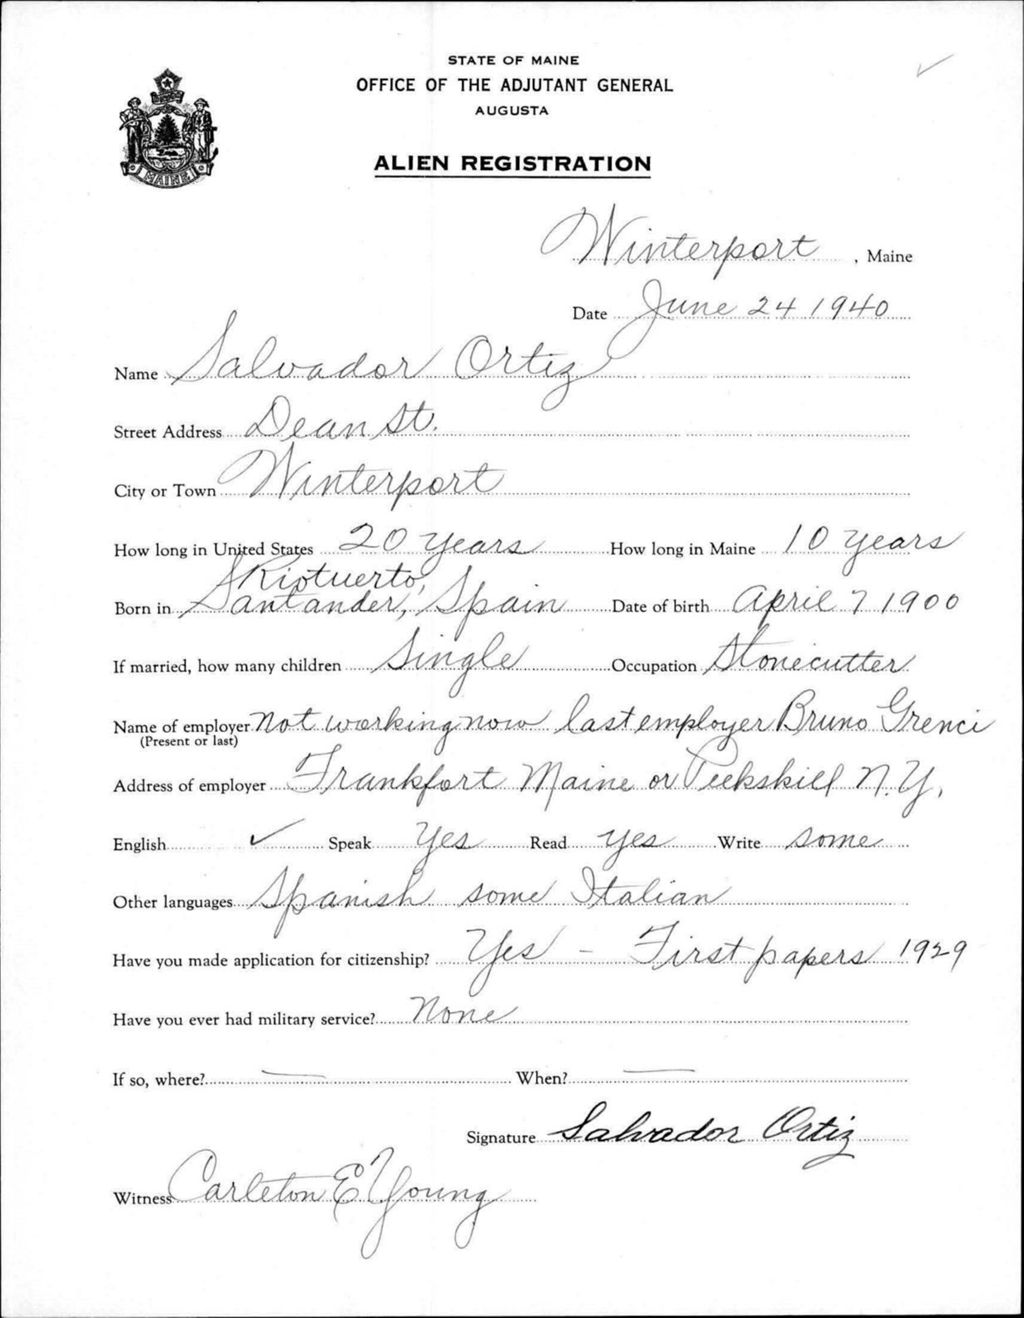 STATE OF MAINE
OFFICE OF THE ADJUTANT GENERAL
AUGUSTA
MAINE
ALIEN REGISTRATION
Winterport, Maine
Date June 24 1940
Name Salvador Ortiz
Street Address Dean St.
City or Town Winterport
How long in United States 20 years How long in Maine 10 years
Riotuerto,
Born in Santander, Spain Date of birth April 7 1900
If married, how many children Single Occupation Stonecutter
Name of employer not working now last employer Bruno Grenci
(Present or last)
Address of employer Frankfort Maine or Peekskill N.Y.
English ✓ Speak Yes Read yes Write some
Other languages Spanish some Italian
Have you made application for citizenship? Yes - First papers 1929
Have you ever had military service? None
If so, where? — When? —
Signature Salvador Ortiz
Witness Carleton E Young